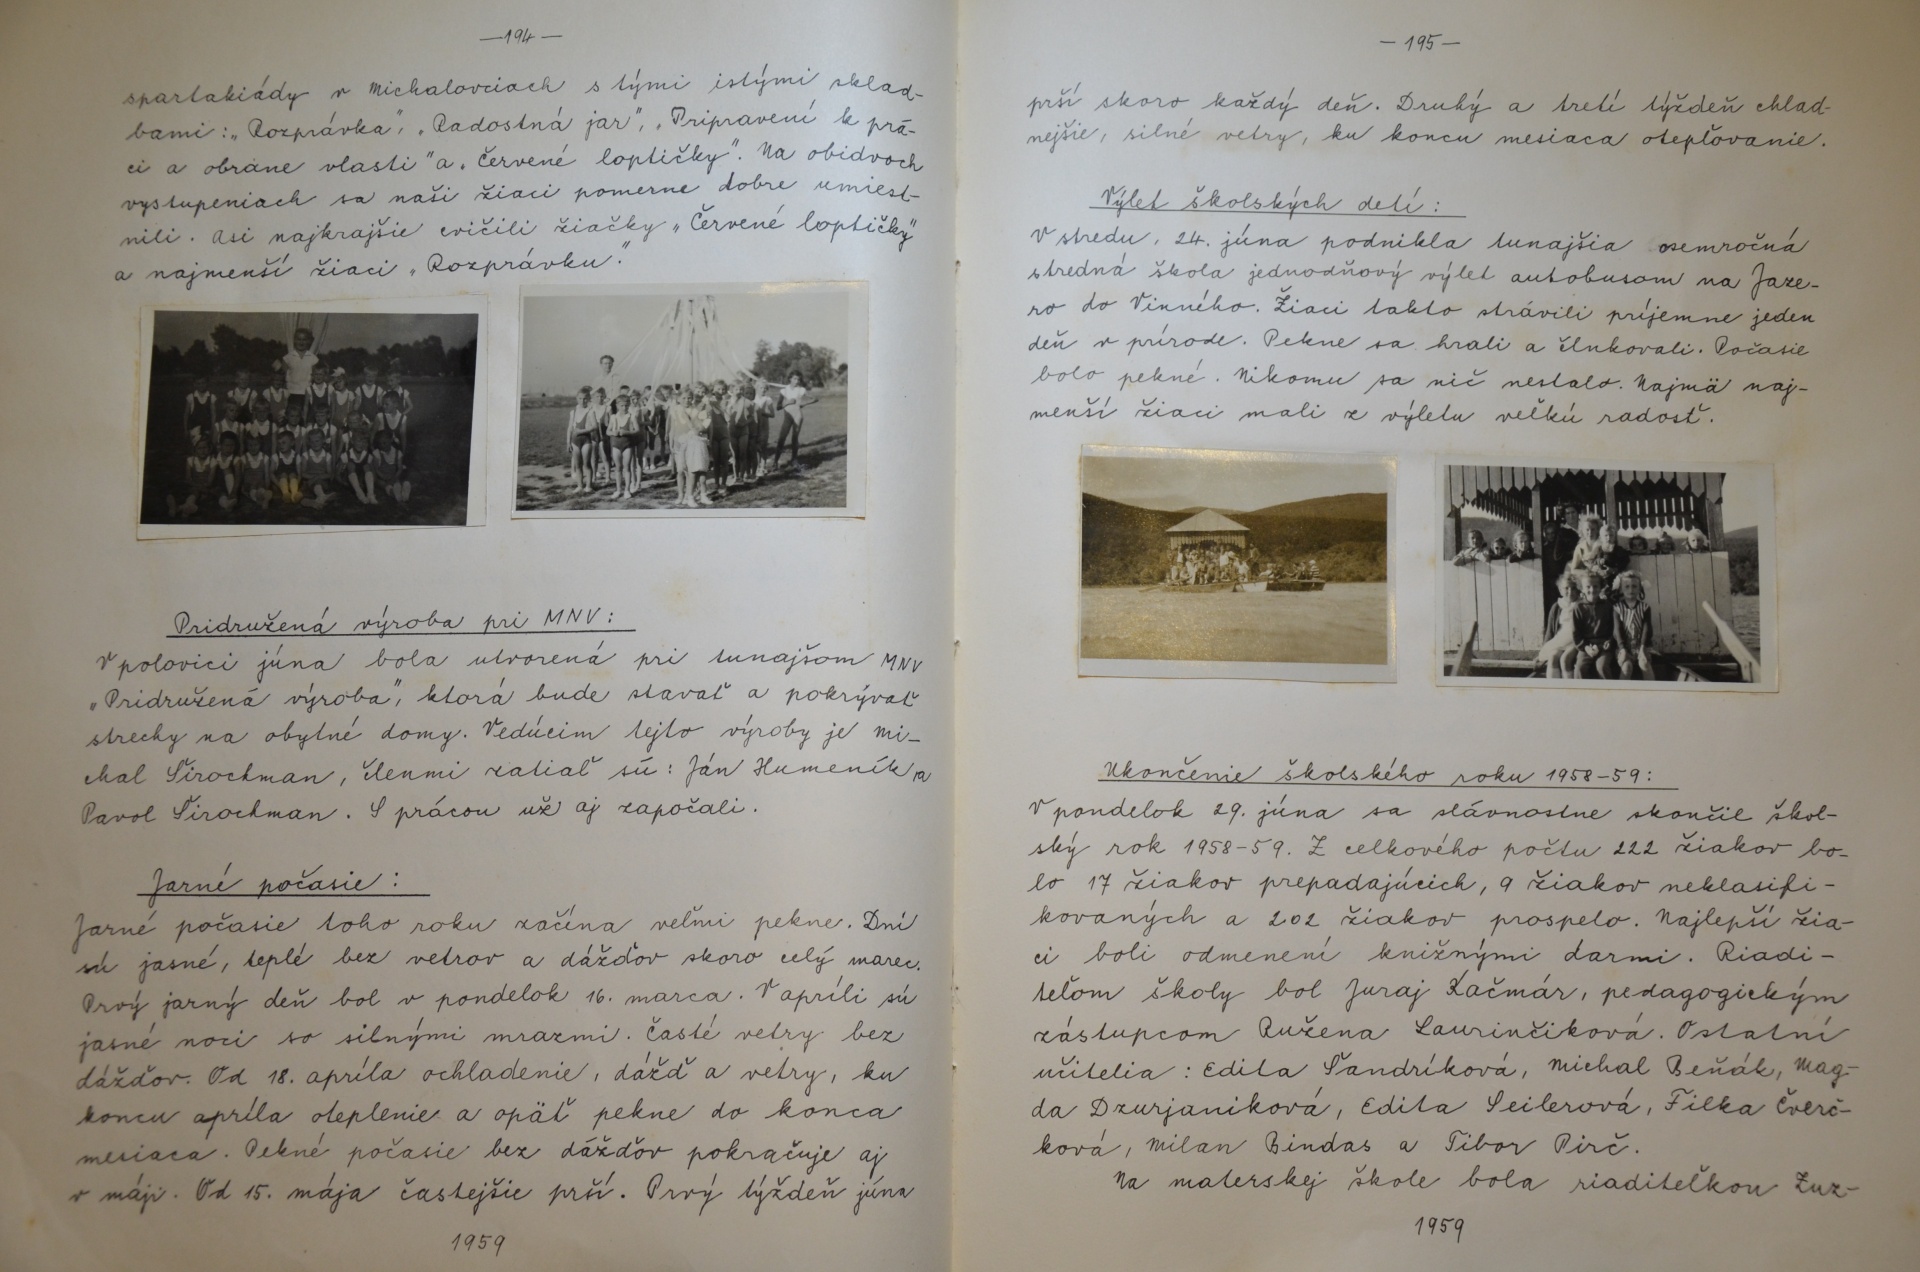 —194—
spartakiády v Michalovciach s tými istými sklad-
bami: „Rozprávka", „Radostná jar", „Pripravení k prá-
ci a obrane vlasti" a „Červené loptičky". Na obidvoch
vystupeniach sa naši žiaci pomerne dobre umiest-
nili. Asi najkrajšie cvičili žiačky „Červené loptičky"
a najmenší žiaci „Rozprávku".
Pridružená výroba pri MNV:
V polovici júna bola utvorená pri tunajšom MNV
„Pridružená výroba", ktorá bude stavať a pokrývať
strechy na obytné domy. Vedúcim tejto výroby je Mi-
chal Širochman, členmi zatiaľ sú: Ján Humeník a
Pavol Širochman. S prácou už aj započali.
Jarné počasie:
Jarné počasie toho roku začína veľmi pekne. Dni
sú jasné, teplé bez vetrov a dážďov skoro celý marec.
Prvý jarný deň bol v pondelok 16. marca. V apríli sú
jasné noci so silnými mrazmi. Časté vetry bez
dážďov. Od 18. apríla ochladenie, dážď a vetry, ku
koncu apríla oteplenie a opäť pekne do konca
mesiaca. Pekné počasie bez dážďov pokračuje aj
v máji. Od 15. mája častejšie prší. Prvý týždeň júna
1959
—195—
prší skoro každý deň. Druhý a tretí týždeň chlad-
nejšie, silné vetry, ku koncu mesiaca otepľovanie.
Výlet školských detí:
V stredu, 24. júna podnikla tunajšia osemročná
stredná škola jednodňový výlet autobusom na Jaze-
ro do Vinného. Žiaci takto strávili príjemne jeden
deň v prírode. Pekne sa hrali a člnkovali. Počasie
bolo pekné. Nikomu sa nič nestalo. Najmä naj-
menší žiaci mali z výletu veľkú radosť.
Ukončenie školského roku 1958-59:
V pondelok 29. júna sa slávnostne skončil škol-
ský rok 1958-59. Z celkového počtu 222 žiakov bo-
lo 17 žiakov prepadajúcich, 9 žiakov neklasifi-
kovaných a 202 žiakov prospelo. Najlepší žia-
ci boli odmenení knižnými darmi. Riadi-
teľom školy bol Juraj Kačmár, pedagogickým
zástupcom Ružena Laurinčiková. Ostatní
učitelia: Edita Šandríková, Michal Beňák, Mag-
da Dzurjaniková, Edita Seilerová, Filka Čverč-
ková, Milan Bindas a Tibor Pirč.
Na materskej škole bola riaditeľkou Zuz-
1959